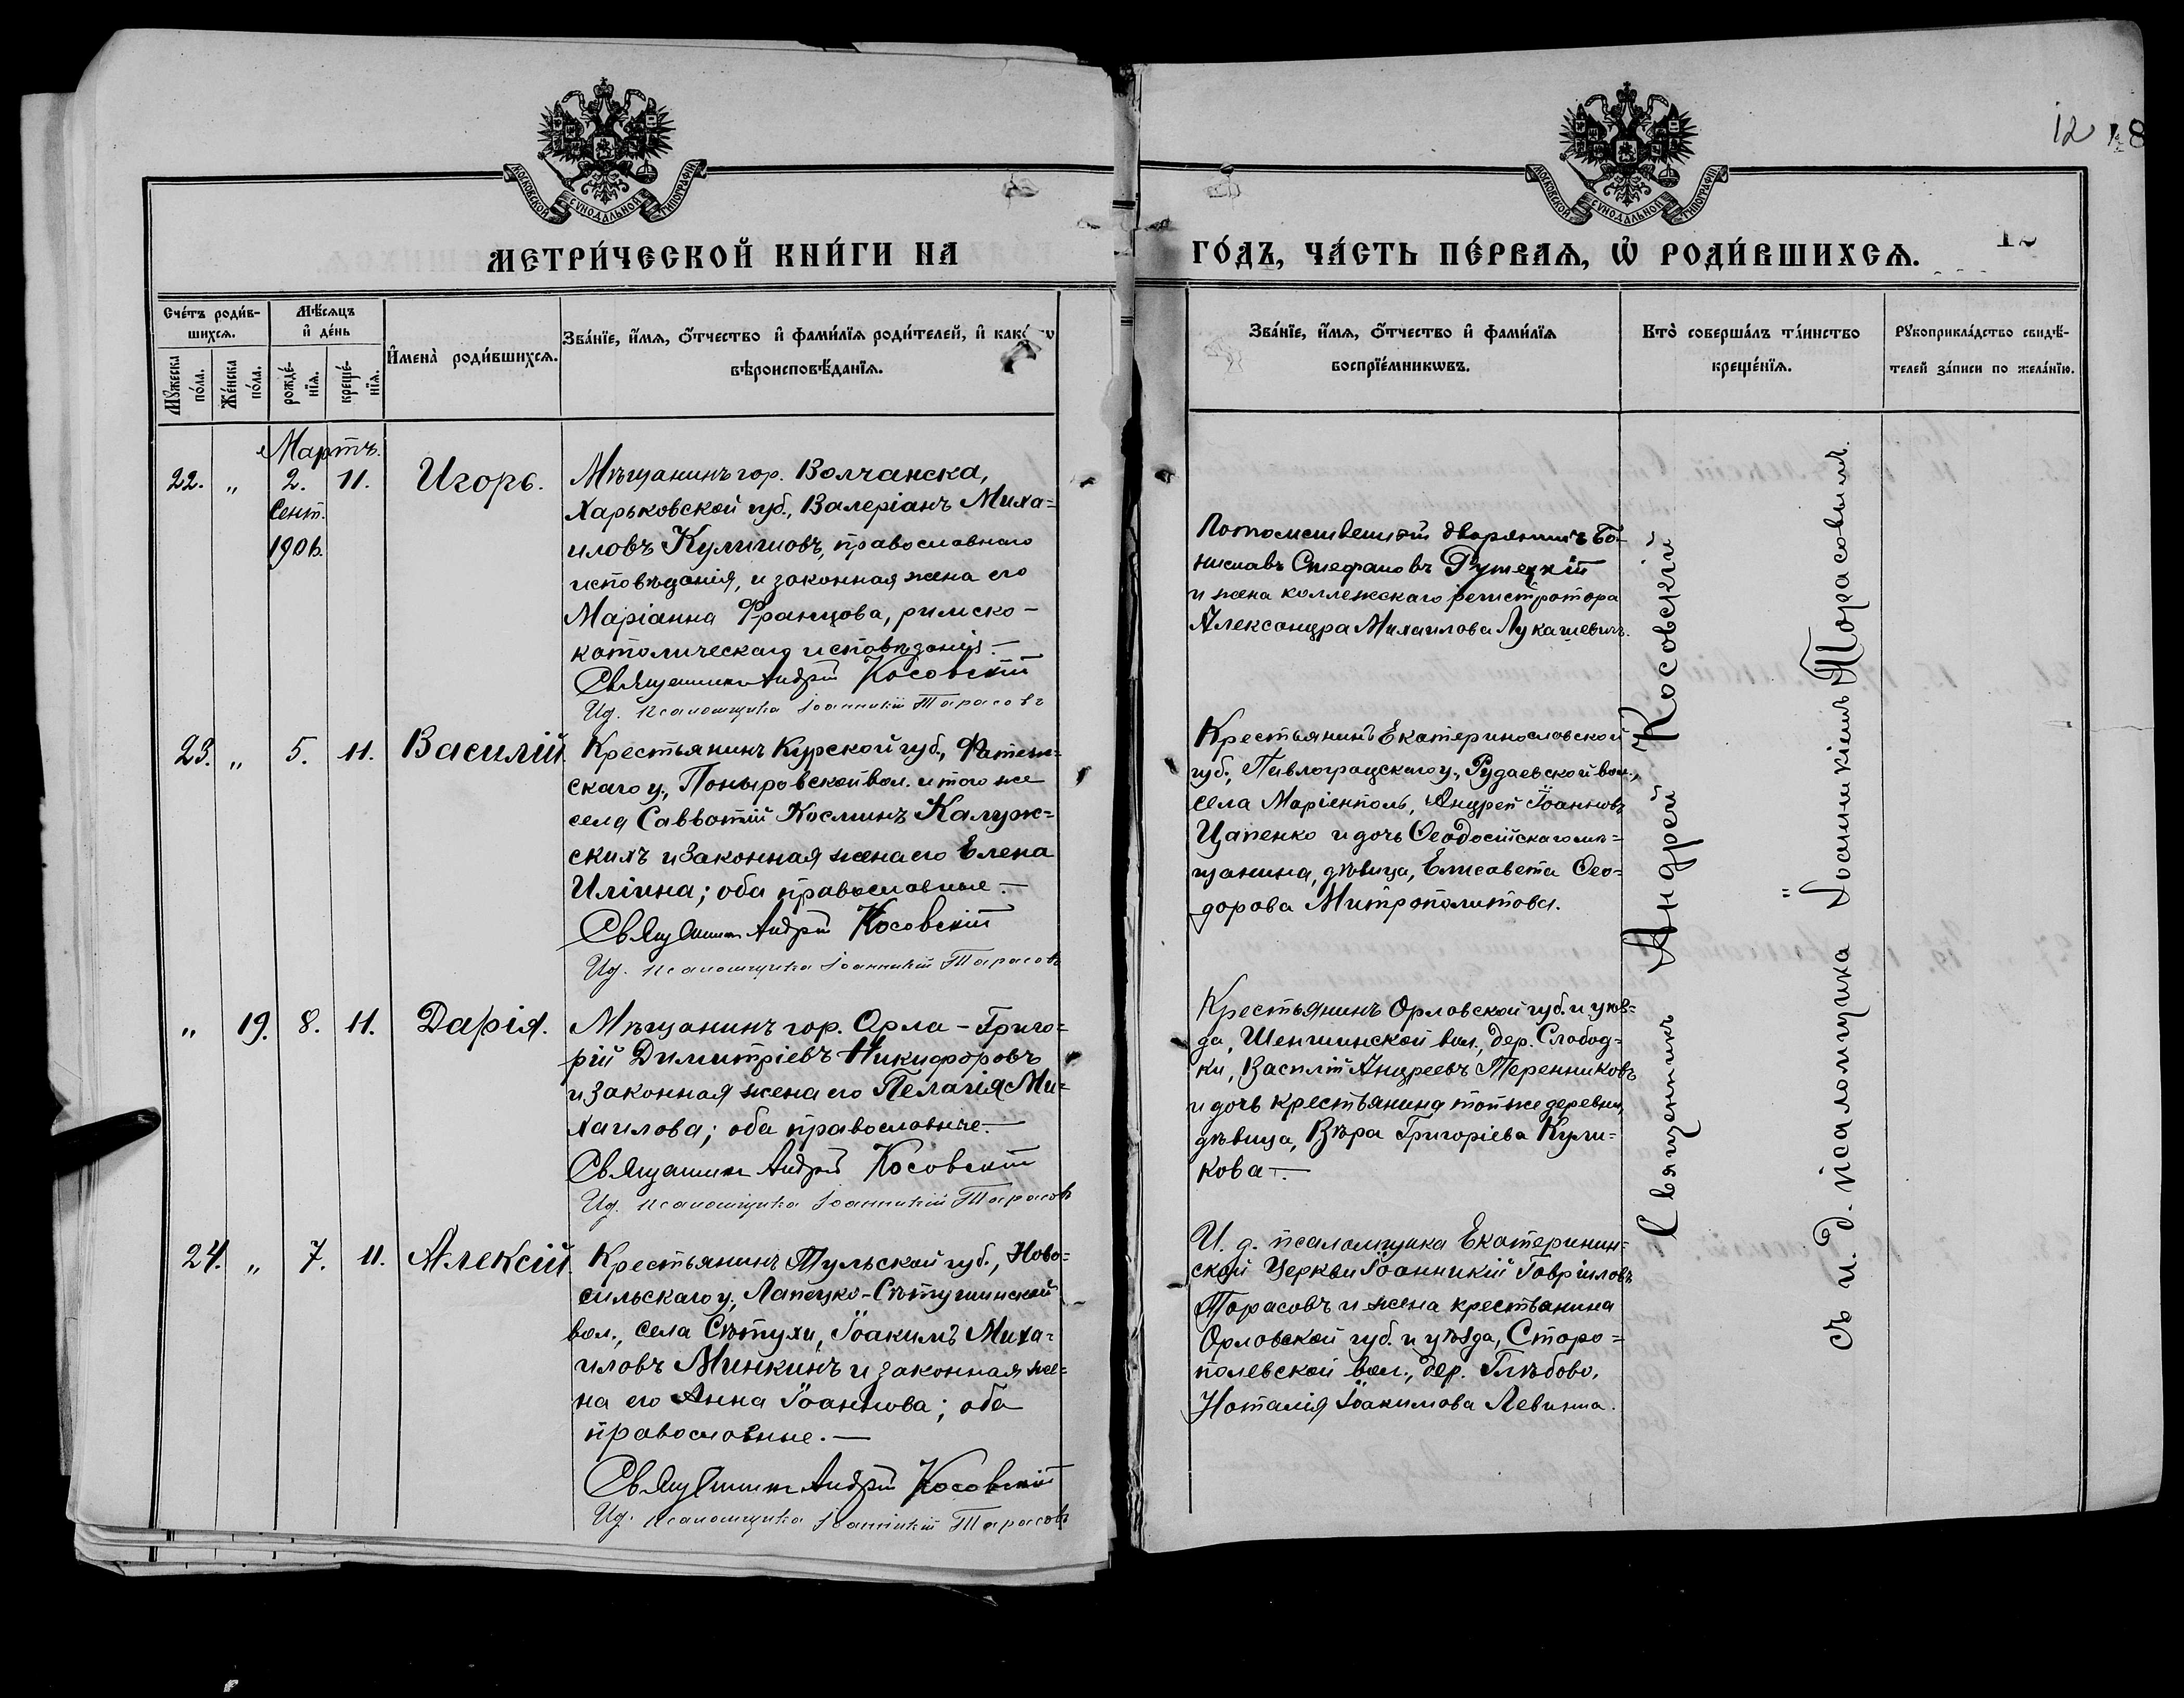 12
МОСКОВСКОЙ СѴНОДАЛЬНОЙ ТИПОГРАФІИ
МОСКОВСКОЙ СѴНОДАЛЬНОЙ ТИПОГРАФІИ
МЕТРИ́ЧЕСКОЙ КНИ́ГИ НА
ГО́ДЪ, ЧА́СТЬ ПЕ́РВАѦ, Ѡ҆ РОДИ́ВШИХСѦ.
Сче́тъ роди́в-
шихсѧ.
Мꙋ́жеска по́ла.
Же́нска по́ла.
Мѣ́сѧцъ и҆ де́нь
рожде́-нїѧ.
креще́-нїѧ.
И҆мена̀ роди́вшихсѧ.
Зва́нїе, и҆́мѧ, ѻ҆́тчество и҆ фами́лїѧ роди́телей, и҆ како́гѡ
вѣроисповѣ́данїѧ.
Зва́нїе, и҆́мѧ, ѻ҆́тчество и҆ фами́лїѧ
воспрїе́мникѡвъ.
Кто̀ соверша́лъ та́инство
креще́нїѧ.
Рꙋкоприкла́дство свидѣ́-
телей за́писи по жела́нїю.
Мартъ.
22. „ 2. 11. Игорь.
Сент.
1906.
Мѣщанинъ гор. Волчанска,
Харьковской губ., Валеріанъ Миха=
иловъ Кулишовъ, православнаго
исповѣданія, и законная жена его
Маріанна Францова, римско-
католическаго исповѣданія.—
Священникъ Андрей Косовскій
И.д. псаломщика Іоанникій Тарасовъ
Потомственный дворянинъ Бо-
ниславъ Стефановъ Рутецкій
и жена коллежскаго регистратора
Александра Михаилова Лукашевичъ.
23. „ 5. 11. Василій.
Крестьянинъ Курской губ., Фатеж=
скаго у., Поныровской вол. и того же
села Савватій Косминъ Калуж=
скихъ и законная жена его Елена
Иліина; оба православные.—
Священникъ Андрей Косовскій
И.д. псаломщика Іоанникій Тарасовъ
Крестьянинъ Екатеринославской
губ., Павлоградскаго у., Рудаевской вол.,
села Маріенполь, Андрей Іоанновъ
Цапенко и дочь Ѳеодосійскаго мѣ=
щанина, дѣвица, Елисавета Ѳео=
дорова Митрополитова.
„ 19. 8. 11. Дарія.
Мѣщанинъ гор. Орла - Григо=
рій Димитріевъ Никифоровъ
и законная жена его Пелагія Ми=
хаилова; оба православные.—
Священникъ Андрей Косовскій
И.д. псаломщика Іоанникій Тарасовъ
Крестьянинъ Орловской губ. и уѣз=
да, Шеншинской вол., дер. Слобод=
ки, Василій Андреевъ Теренниковъ
и дочь крестьянина той же деревни,
дѣвица, Вѣра Григоріева Кули=
кова.—
24. „ 7. 11. Алексій.
Крестьянинъ Тульской губ., Ново=
сильскаго у., Лапецко-Сѣтушинской
вол., села Сѣтухи, Іоакимъ Миха=
иловъ Минкинъ и законная же=
на его Анна Іоаннова; оба
православные.—
Священникъ Андрей Косовскій
И.д. псаломщика Іоанникій Тарасовъ
И. д. псаломщика Екатеринин=
ской Церкви Іоанникій Гавріиловъ
Тарасовъ и жена крестьянина
Орловской губ. и уѣзда, Старо=
полевской вол., дер. Глѣбово,
Наталія Іоакимова Левкина.
Священникъ Андрей Косовскій
съ и. д. псаломщика Іоанникіемъ Тарасовымъ.